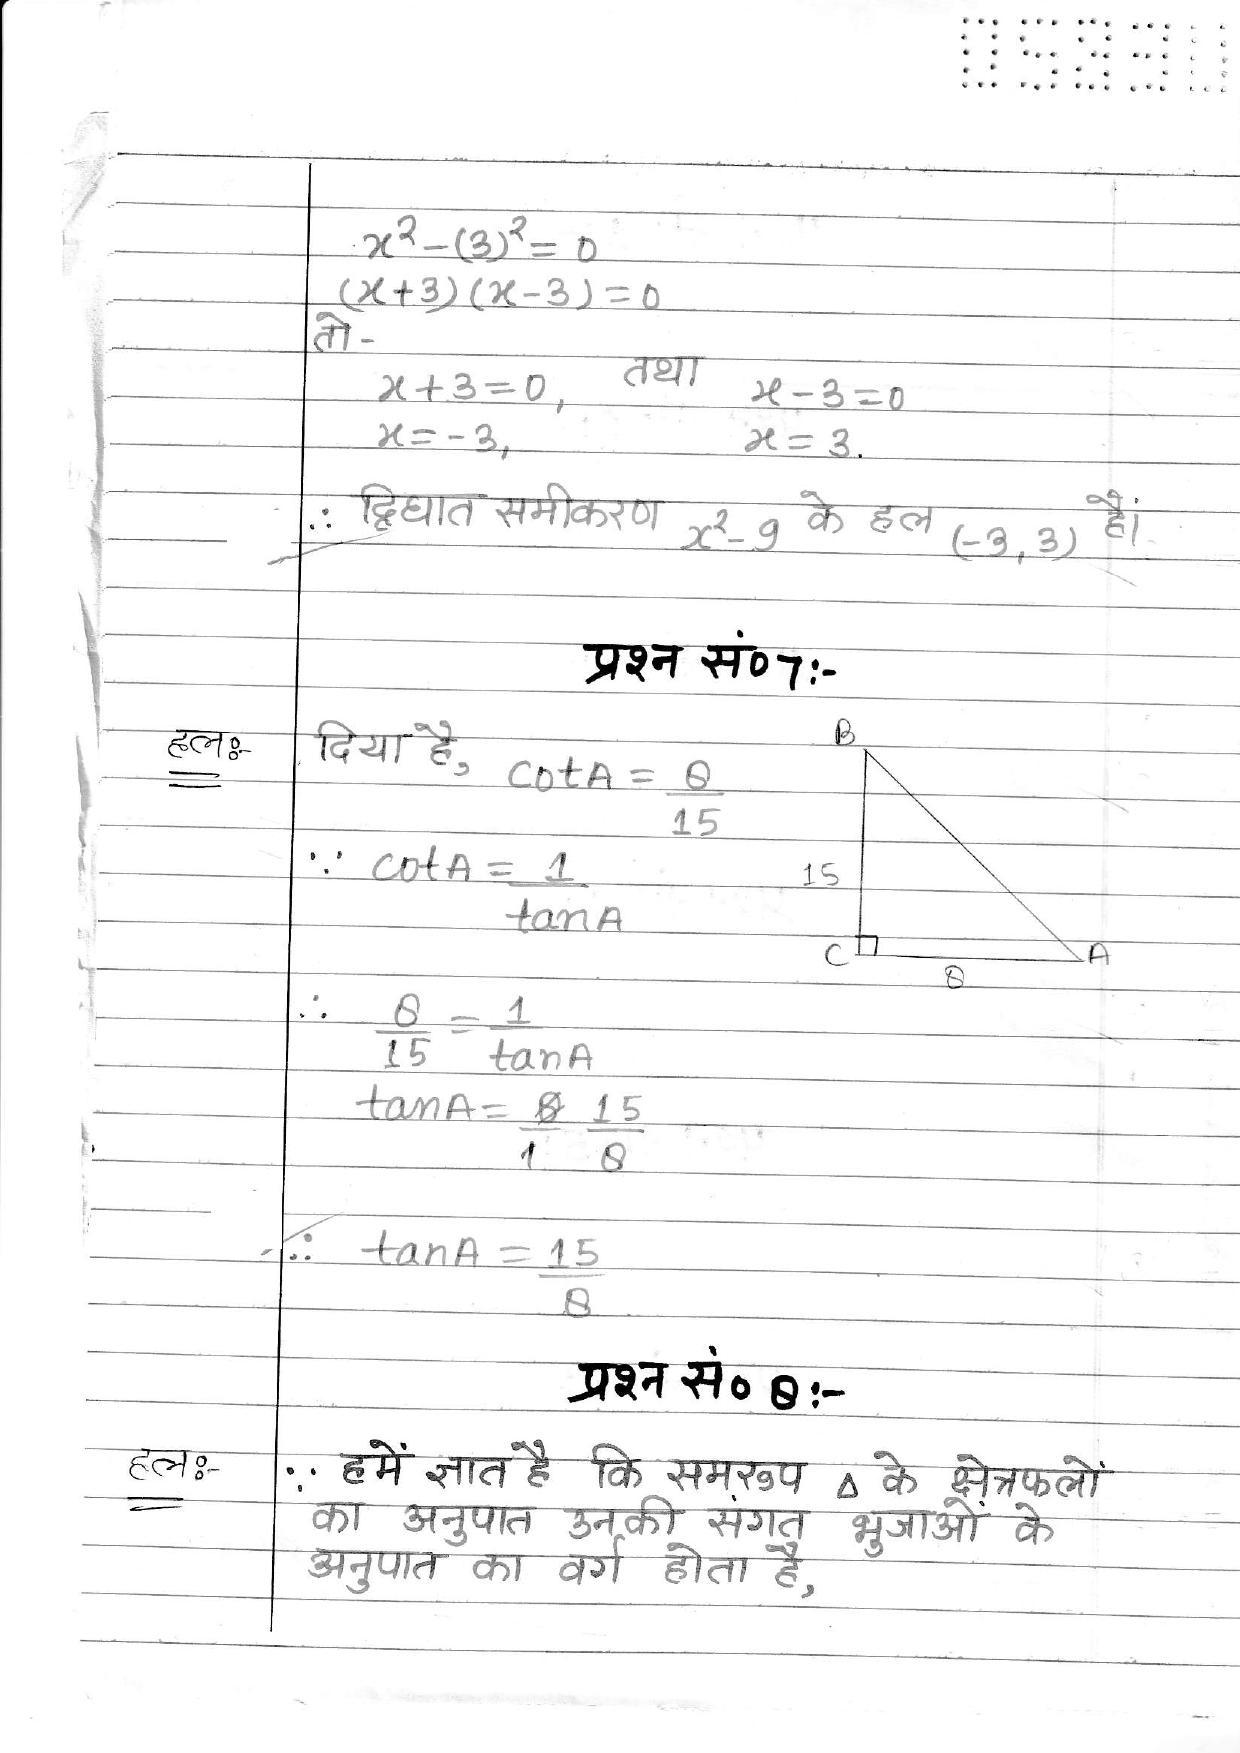 x² - (3)² = 0
(x+3)(x-3) = 0
तो -
x+3=0, तथा x-3=0
x=-3, x=3.
∴ द्विघात समीकरण x²-9 के हल (-3, 3) हैं।
प्रश्न सं० 7:-
हलः- दिया है, cotA = 8/15
∵ cotA = 1/tanA
∴ 8/15 = 1/tanA
tanA = 15/8
∴ tanA = 15/8
B
15
C
A
8
प्रश्न सं० 8:-
हलः- ∵ हमें ज्ञात है कि समरूप Δ के क्षेत्रफलों
का अनुपात उनकी संगत भुजाओं के
अनुपात का वर्ग होता है,